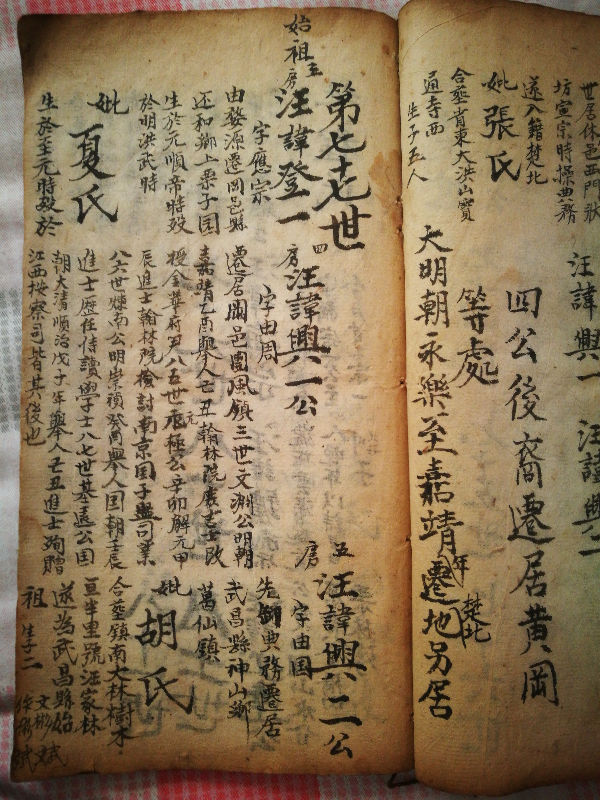 世居休邑西門
坊宣宗時掃典務
遂入籍楚北
妣張氏
合塟省東大洪山寶
通寺西
生子五人
汪諱興一
汪諱興二
四公後裔遷居黃岡
等處
大明朝永樂至嘉靖年遷地另居
楚北
第七十七世
始祖
五房
汪諱登一
字應宗
由婺源遷岡邑縣
还和鄉上栗子囯
生於元順帝時殁
於明洪武時
妣夏氏
生於至元時殁於
四房
汪諱興一公
字由周
遷居邑團風鎮三世文淵公明朝
嘉靖乙酉舉人己丑翰林院庶吉士改
授金華府五八五世元極公辛卯解元甲
辰進士翰林院檢討南京国子監司業
八六世煉南公明崇禎癸酉舉人国朝壬辰
進士歷任侍讀學士八七世基遠公国
朝大清順治戊子年舉人己丑進士殉贈
江西按察司皆其後也
五房
汪諱興二公
字由国
先卸典務遷居
武昌縣神山鄉
葛仙鎮
妣胡氏
合塟鎮南大林樹木
亘半里號汪家林
遂為武昌縣始
祖
生子二
文彬